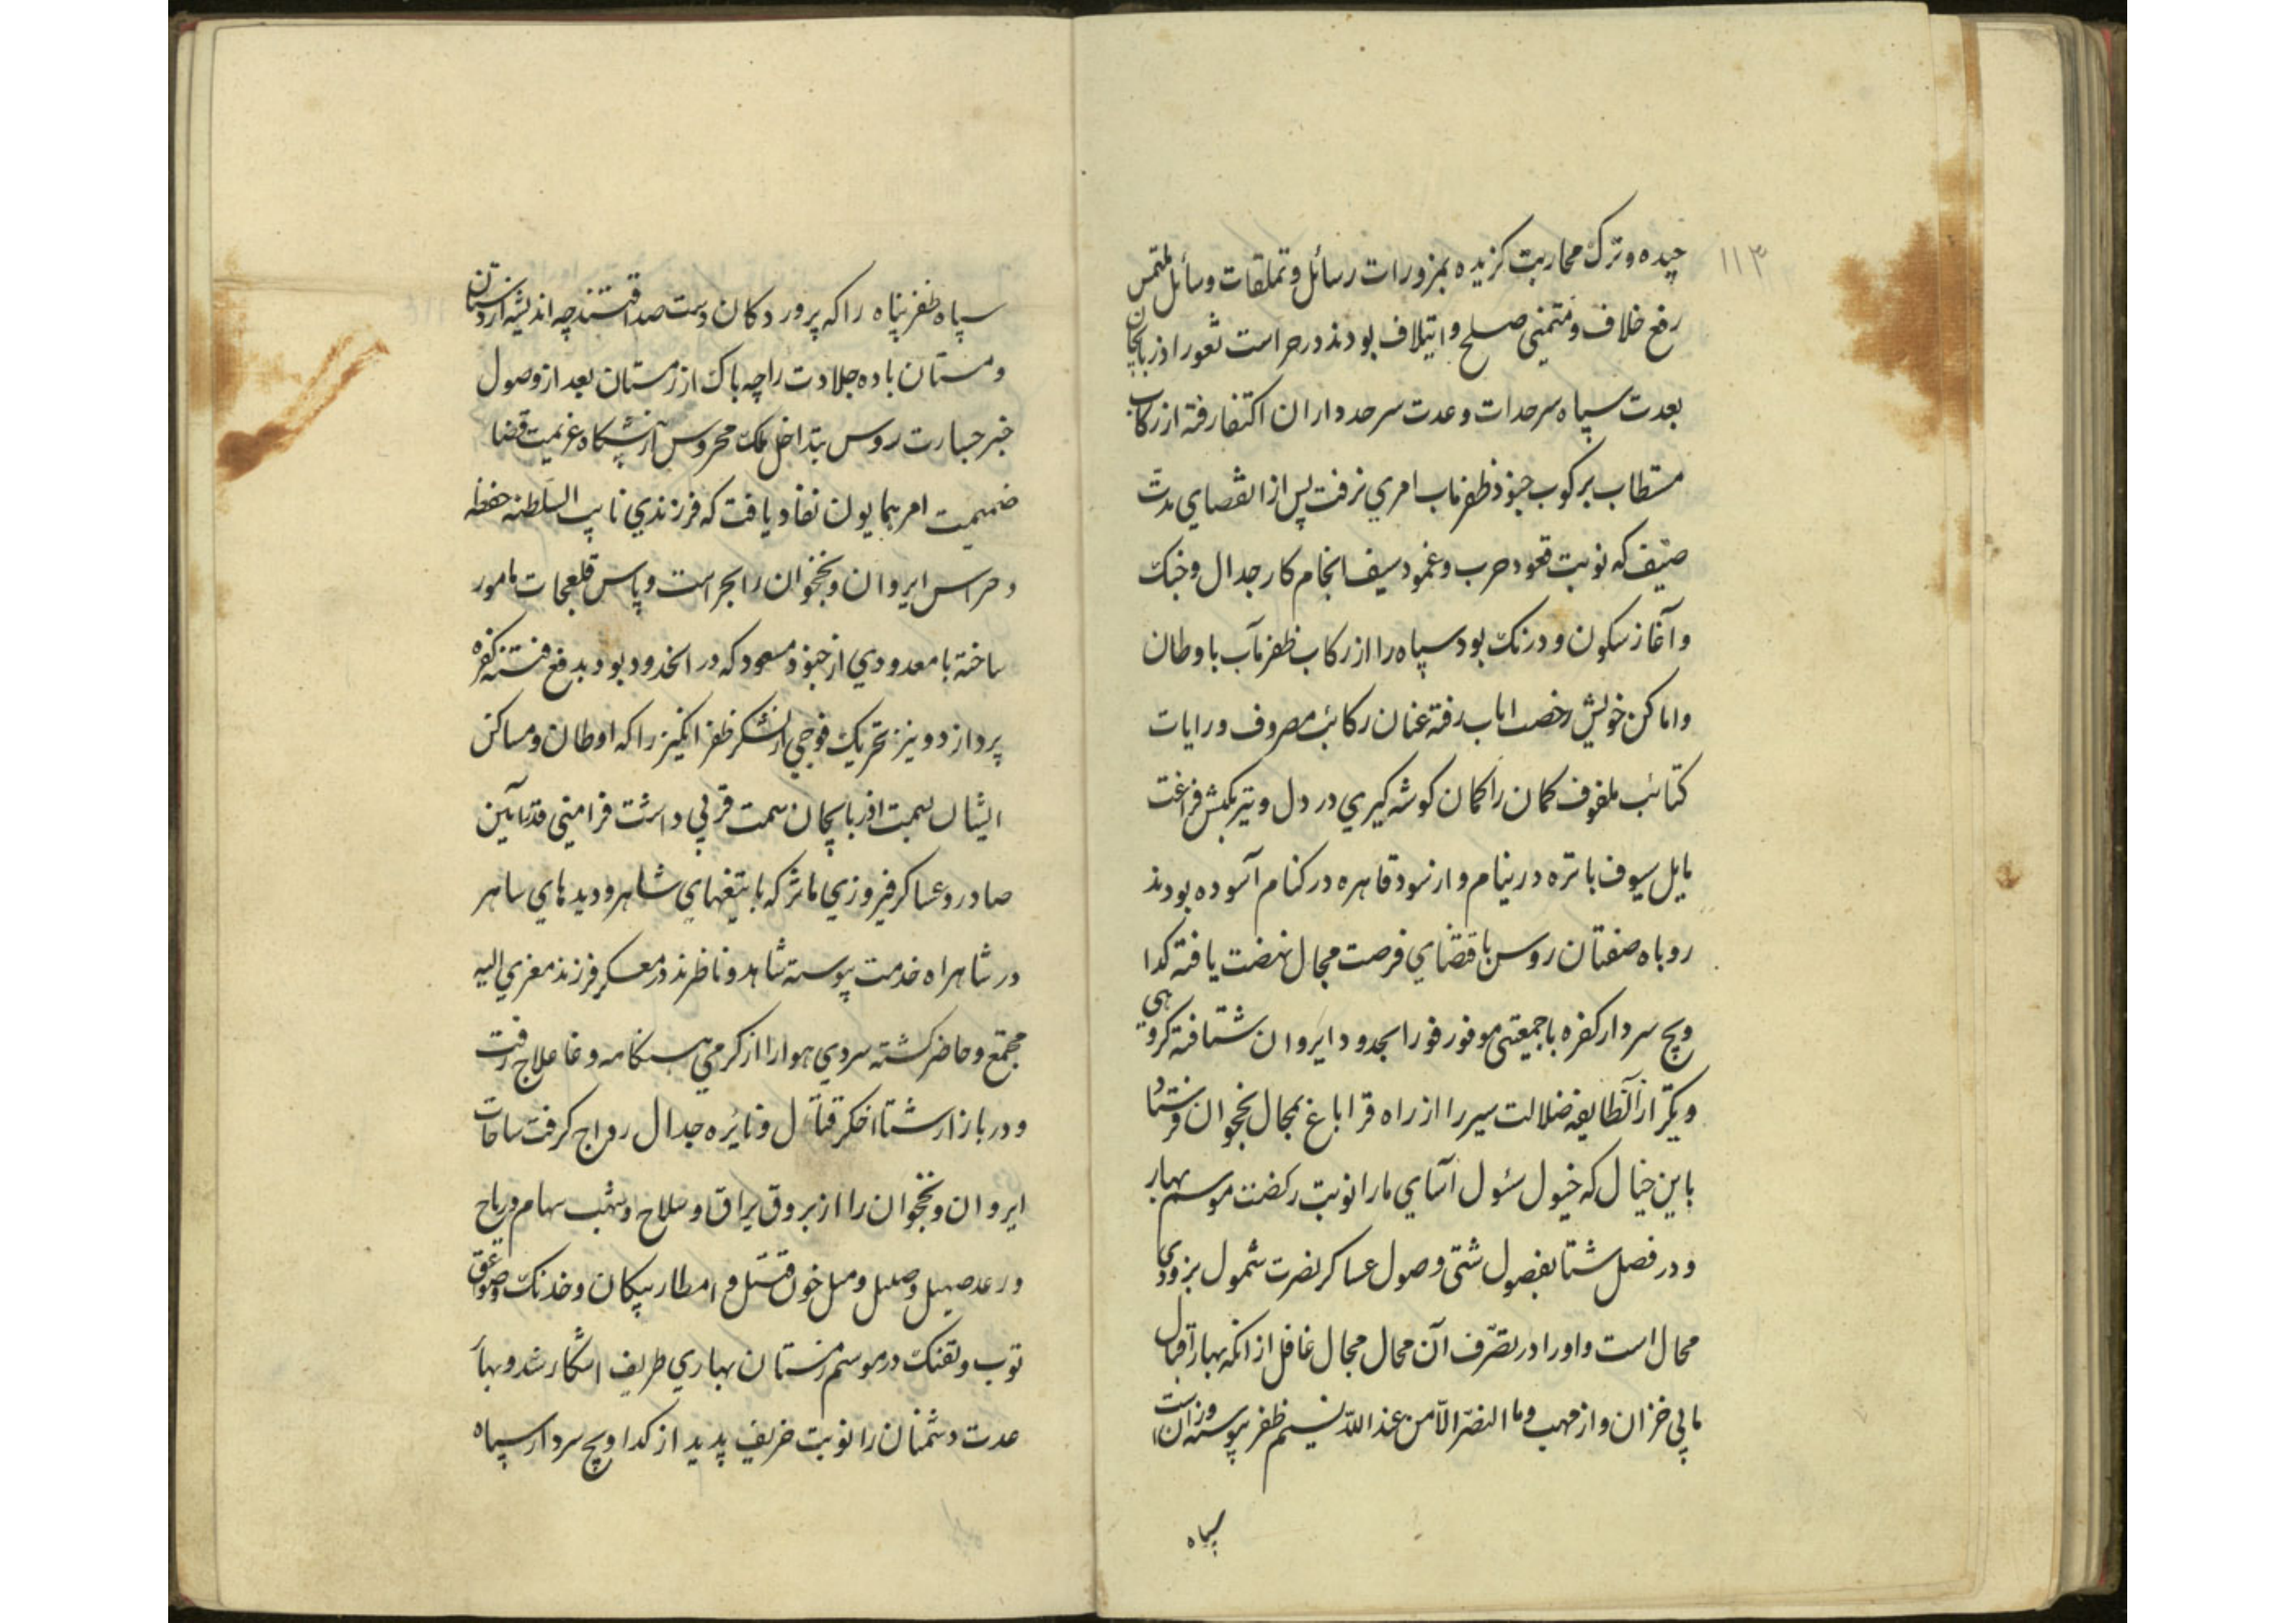 ۱۱۳
چیده و ترک محاربت کزیده بمزورات رسائل و تملقات وسائل ملتمس
رفع خلاف و متمنی صلح و ایتلاف بودند در حراست ثغور اذربایجان
بعدت سپاه سرحدات وعدت سرحدداران اکتفا رفته از رکاب
مستطاب برکوب جنود ظفرماب امری نرفت پس از انقضای مدت
صیف که نوبت قعود حرب و غمود سیف انجام کار جدال و جنک
و آغاز سکون و درنک بود سپاه را از رکاب ظفرمآب باوطان
و اماکن خویش رخصت ایاب رفته عنان رکائب مصروف و رایات
کتائب ملفوف کمان را کمان کوشه کیری در دل و تیر بکیش فراغت
مایل سیوف باتره در نیام و اسود قاهره در کنام آسوده بودند
روباه صفتان روس باقتضای فرصت مجال نهضت یافته کدا
ویچ سردار کفره با جمعیتی موفور فورا بحدود ایروان شتافته کروهی
دیکر از آنطایفه ضلالت سیر را از راه قراباغ بمحال نخجوان فرستاد
باین خیال که خیول سئول آسای ما را نوبت رکضت موسم بهار
و در فصل شتا بفصول شتی وصول عساکر نصرت شمول بزودی
محال است و او را در تصرف آن محال مجال غافل از انکه بهار اقبال
ما بی خزان و از مهب و ما النصر الا من عند الله نسیم ظفر پیوسته وزان است
سپاه
سپاه ظفر پناه را که پروردکان دست صداقتند چه اندیشه از دستان
و مستان باده جلادت را چه باک از زمستان بعد از وصول
خبر جسارت روس بتداخل ملک محروس از پیشکاه عزیمت قضا
ضمیمت امر همایون نفاذ یافت که فرزندی نایب السلطنه حفظه
و حراس ایروان و نخجوان را بحراست و پاس قلعجات مامور
ساخته با معدودی از جنود مسعود که در انحدود بود بدفع فتنه کفره
پردازد و نیز تحریک فوجی از لشکر ظفر انکیز را که اوطان و مساکن
ایشان بسمت اذربایجان سمت قربی داشت فرامین قدرآیین
صادر و عساکر فیروزی ماثر که با تیغهای شاهر و دیدهای ساهر
در شاهراه خدمت پیوسته شاهد و ناظرند در معسکر فرزند معزی الیه
مجتمع و حاضر کشته سردی هوا را از کرمی هنکامه وغا علاج رفت
و در بازار شتا اخکر قتال و نایره جدال رواج کرفت ساحات
ایروان و نخجوان را از بروق یراق و سلاح و شهب سهام و ریاح
و رعد صهیل و صلیل و سیل خون قتیل و امطار پیکان و خدنک و صواعق
توپ و تفنک در موسم زمستان بهاری طریف اشکار شد و بهار
عدت دشمنان را نوبت خریف پدید از کداویچ سردار سپاه